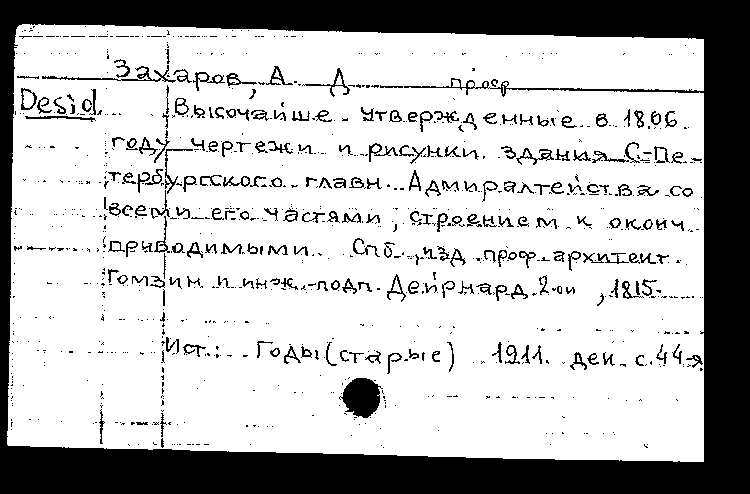 Захаров, А. Д проф
Desid. Высочайше утвержденные в 1806
году чертежи и рисунки здания С.-Пе-
тербургского главн. Адмиралтейства со
всеми его частями, строением к оконч
приводимыми. Спб., изд. проф. архитект.
Гомзин и инж.-подп. 2-ой, 1815.
Ист.: Годы (старые) 1911. дек. с. 44-я